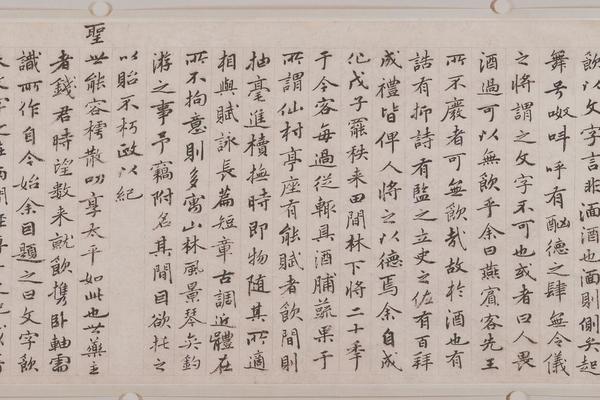 飲以文字言非湎酒也湎則側矣起
舞号呶呌呼有酗德之肆無令儀
之將謂之文字不可也或者曰人畏
酒過可以無飲乎余曰燕賓客先王
所不廢者可無飲哉故於酒也有
誥有抑詩有監之立史之佐有百拜
成禮皆俾人將之以德焉余自成
化戊子罷秩来田間林下將二十年
于今客每過從輙具酒脯蔬果于
所謂仙村亭座有能賦者飲間則
抽毫進牘撫時即物随其所適
相與賦詠長篇短章古調近體在
所不拘意則多寓山林風景琴奕釣
游之事予竊附名其間目欲托之
以貽不朽政以紀
聖世能容樗散叨享太平如此也世藥主
者錢君時望数来就飲携卧軸需
識所作自今始余目題之曰文字飲